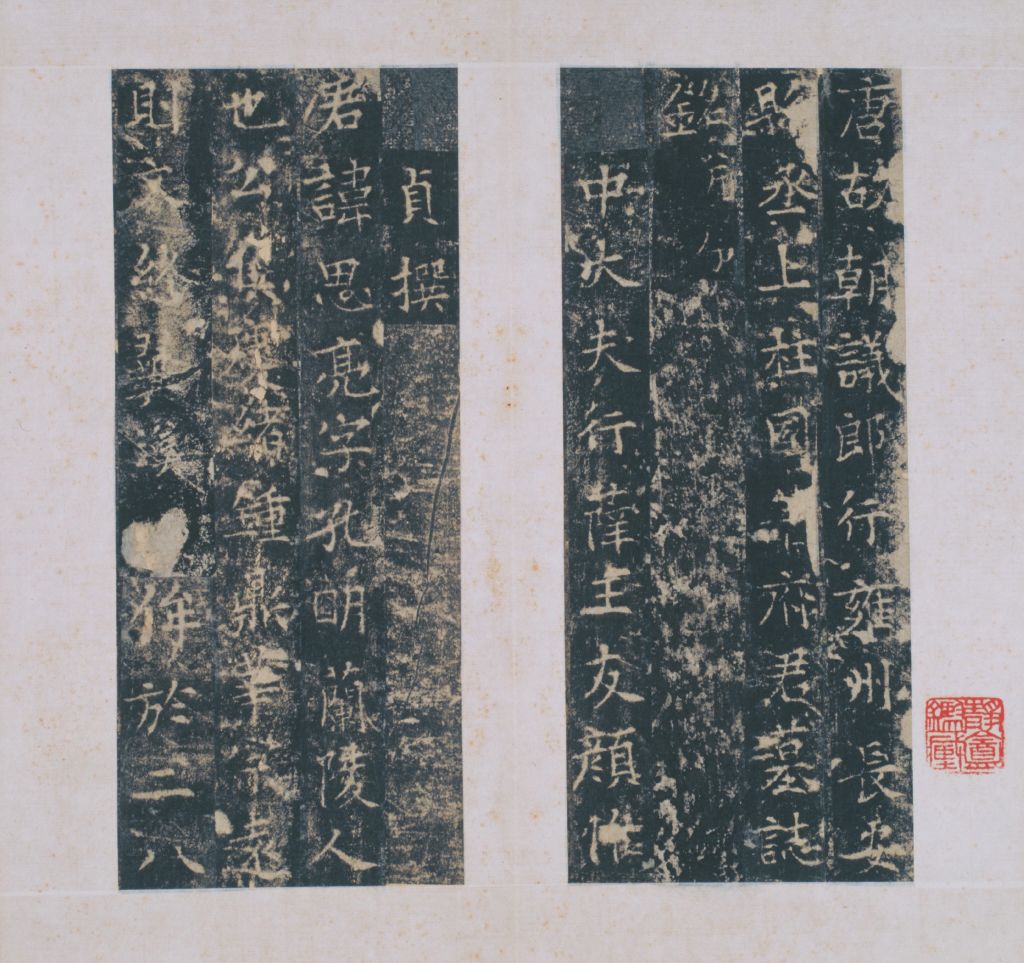 唐故朝議郎行雍州長安
縣丞上柱國府君墓誌
銘并序
中大夫行薛王友顏惟
貞撰
君諱思亮字孔明蘭陵人
也公侯繼緒鍾鼎華宗遠
則文終翼漢侔於二八
靜盦